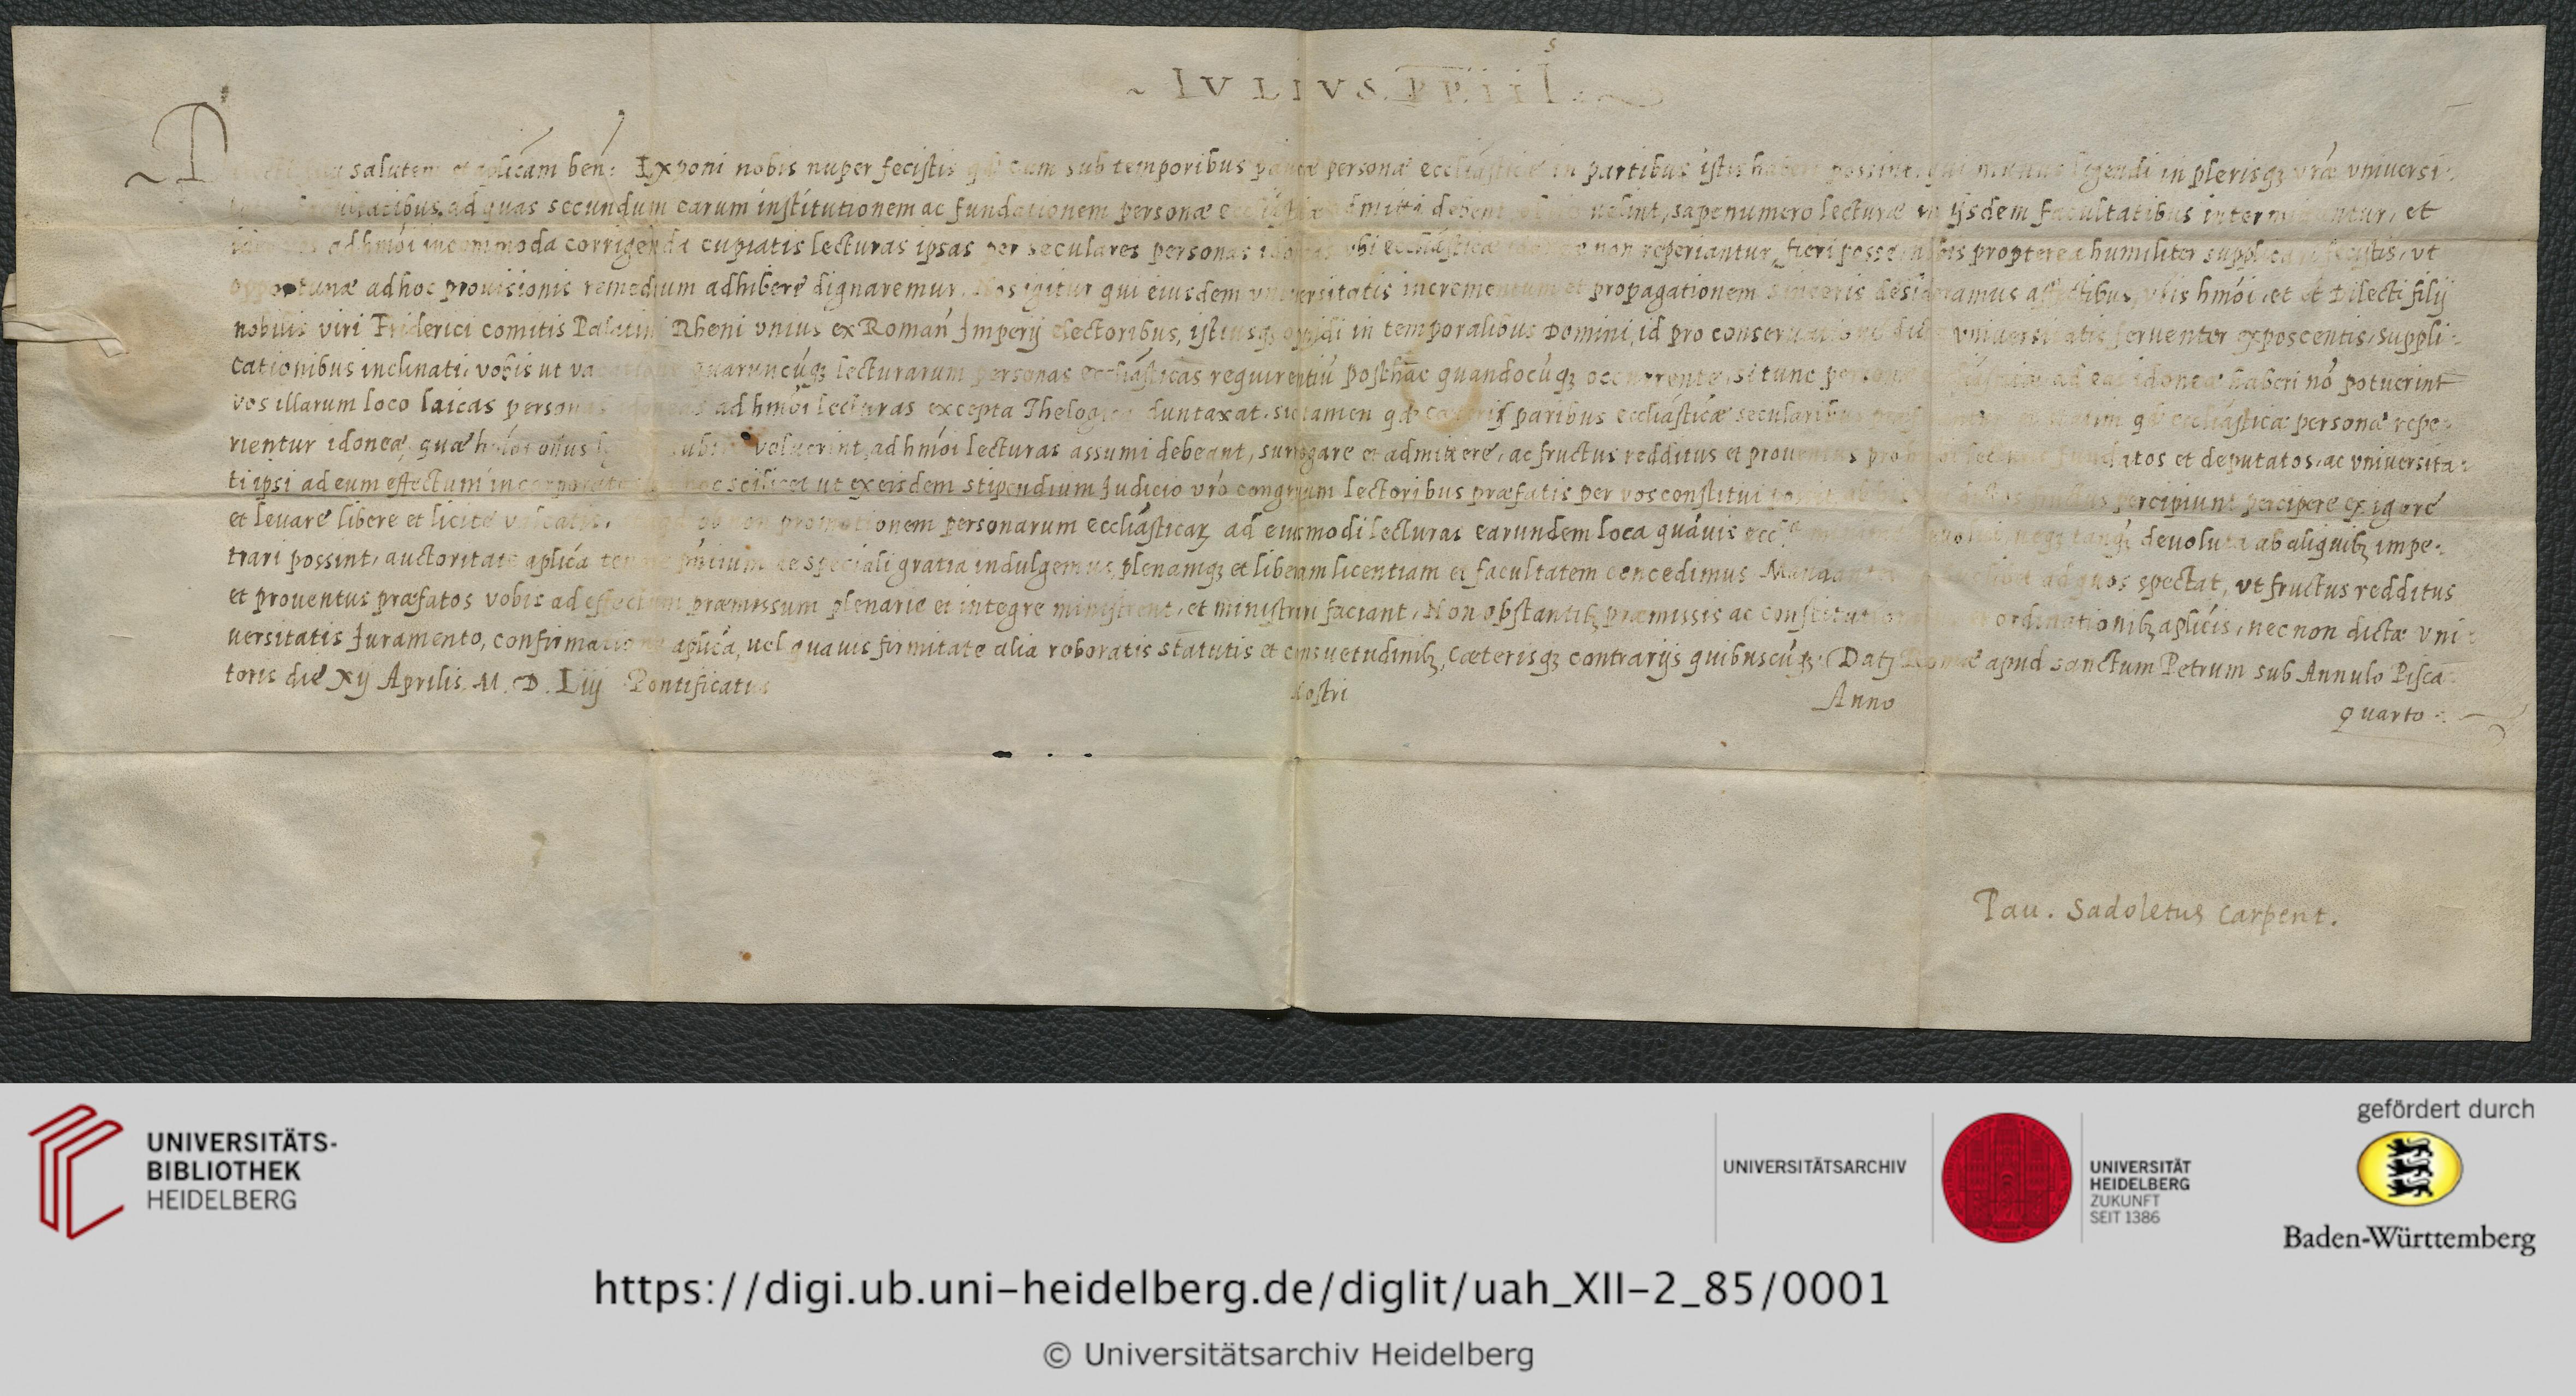 IVLIVS. PP. iii
salutem et aplicam ben: Exponi nobis nuper fecistis qd cum sub temporibus personæ ecclasticæ in partibus istis possint, legendi in plerisqz vræ vniversi-
ad quas secundum earum institutionem ac fundationem personæ debent uelint, sæpenumero lecturæ in ijsdem facultatibus et
ad hmoi incommoda corrigenda cupiatis lecturas ipsas per seculares personas vbi ecclasticæ non reperiantur, fieri posse, propterea humiliter ut
oportunæ ad hoc prouisionis remedium adhibere dignaremur. Nos igitur qui eiusdem vniversitatis incrementum et propagationem desideramus hmoi, et Dilecti filij
nobilis viri Friderici comitis Palatini Rheni vnius ex Roman Imperij electoribus, istiusqz oppidi in temporalibus Domini, id pro conseruatione vniuersitatis feruenter exposcentis, suppli-
cationibus inclinati, vobis ut quaruncuqz lecturarum personas ecclasticas requirentiu posthac quandocuqz occurrente, si tunc ad eas idoneæ haberi no potuerint
vos illarum loco laicas personas ad hmoi lecturas excepta Thelogica duntaxat, sic tamen qd paribus ecclasticæ secularibus qd ecclasticæ personæ repe-
rientur idoneæ, quæ onus voluerint, ad hmoi lecturas assumi debeant, surrogare et admittere, ac fructus redditus et prouentus et deputatos, ac vniuersita-
ti ipsi ad eum effectum scilicet ut ex eisdem stipendium Judicio vro congruum lectoribus præfatis per vos constitui percipiunt percipere exigere
et leuare libere et licite valeatis, non promotionem personarum ecclasticarz ad eiusmodi lecturas earundem loca quauis devoluta ab aliquibz impe-
trari possint, auctoritate aplica ac speciali gratia indulgemus, plenamqz et liberam licentiam et facultatem concedimus ad quos spectat, vt fructus redditus
et prouentus præfatos vobis ad effectum præmissum plenarie et integre ministrent, et ministrari faciant, Non obstantibz præmissis ac ordinationibz aplicis, nec non dictæ vni-
versitatis Juramento, confirmatione aplica, uel quauis firmitate alia roboratis statutis et consuetudinibz, cæterisqz contrarijs quibuscuqz. Datz Romæ apud sanctum Petrum sub Annulo Pisca-
toris die xij Aprilis. M. D. Liij Pontificatus Nostri Anno quarto
Pau. Sadoletus Carpent.
UNIVERSITÄTS-
BIBLIOTHEK
HEIDELBERG
UNIVERSITÄTSARCHIV
UNIVERSITÄT
HEIDELBERG
ZUKUNFT
SEIT 1386
gefördert durch
Baden-Württemberg
https://digi.ub.uni-heidelberg.de/diglit/uah_XII-2_85/0001
© Universitätsarchiv Heidelberg